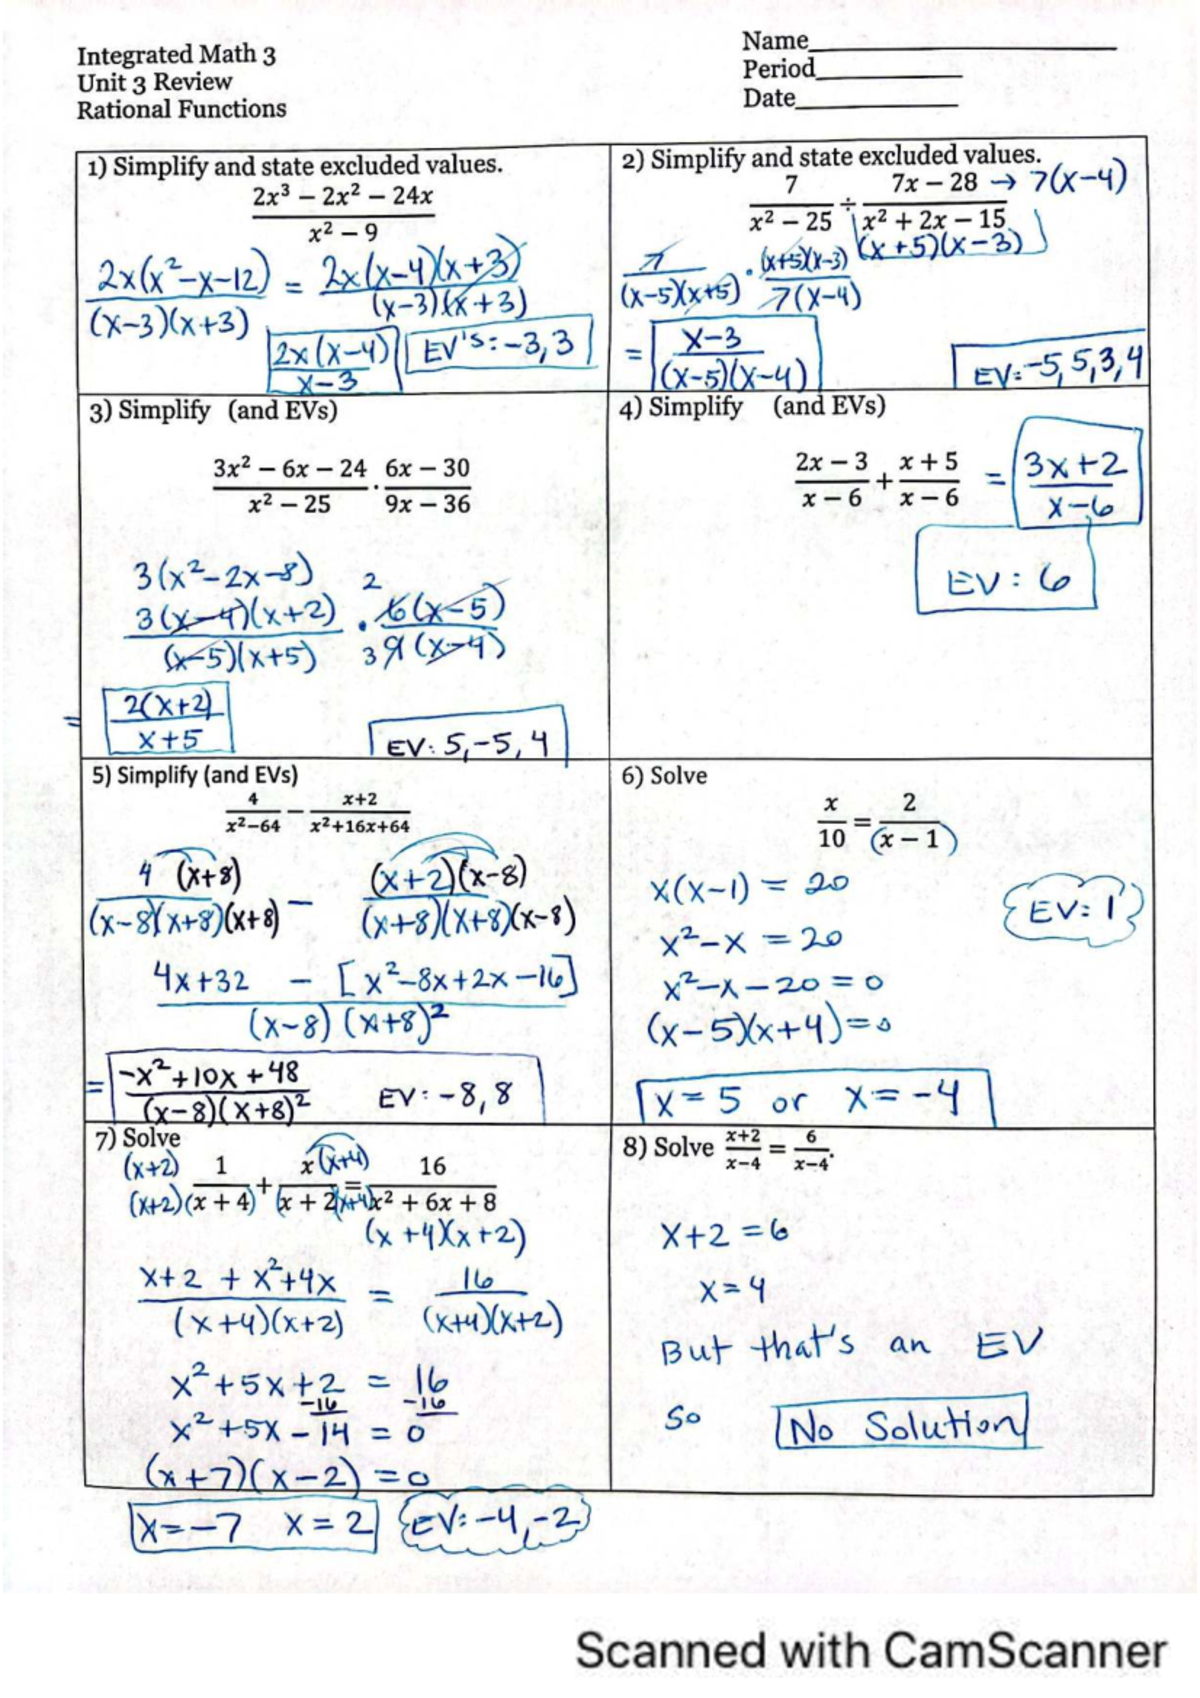 Integrated Math 3
Unit 3 Review
Rational Functions
Name
Period
Date
1) Simplify and state excluded values.
2x³ − 2x² − 24x
x² − 9
2x(x²−x−12) = 2x(x−4)(x+3)
(x−3)(x+3) (x−3)(x+3)
2x(x−4) EV's: −3, 3
x−3
2) Simplify and state excluded values.
7 ÷ 7x − 28 → 7(x−4)
x² − 25 x² + 2x − 15
(x+5)(x−3)
7 · (x+5)(x−3)
(x−5)(x+5) 7(x−4)
= x−3
(x−5)(x−4)
EV: −5, 5, 3, 4
3) Simplify (and EVs)
3x² − 6x − 24 · 6x − 30
x² − 25 9x − 36
3(x²−2x−8) 2
3(x−4)(x+2) · 6(x−5)
(x−5)(x+5) 3 9(x−4)
= 2(x+2)
x+5
EV: 5, −5, 4
4) Simplify (and EVs)
2x − 3 + x + 5 = 3x+2
x − 6 x − 6 x−6
EV: 6
5) Simplify (and EVs)
4 − x+2
x²−64 x²+16x+64
4 (x+8) − (x+2)(x−8)
(x−8)(x+8)(x+8) (x+8)(x+8)(x−8)
4x+32 − [x²−8x+2x−16]
(x−8)(x+8)²
= −x²+10x+48
(x−8)(x+8)²
EV: −8, 8
6) Solve
x = 2
10 (x − 1)
x(x−1) = 20
EV: 1
x²−x = 20
x²−x−20 = 0
(x−5)(x+4)=0
x = 5 or x = −4
7) Solve
(x+2) 1 + x(x+4) = 16
(x+2)(x + 4) (x + 2)(x+4) x² + 6x + 8
(x+4)(x+2)
x+2 + x²+4x = 16
(x+4)(x+2) (x+4)(x+2)
x²+5x+2 = 16
−16 −16
x²+5x−14 = 0
(x+7)(x−2) = 0
x=−7 x=2 EV: −4, −2
8) Solve x+2 = 6 .
x−4 x−4
x+2 = 6
x = 4
But that's an EV
So No Solution
Scanned with CamScanner